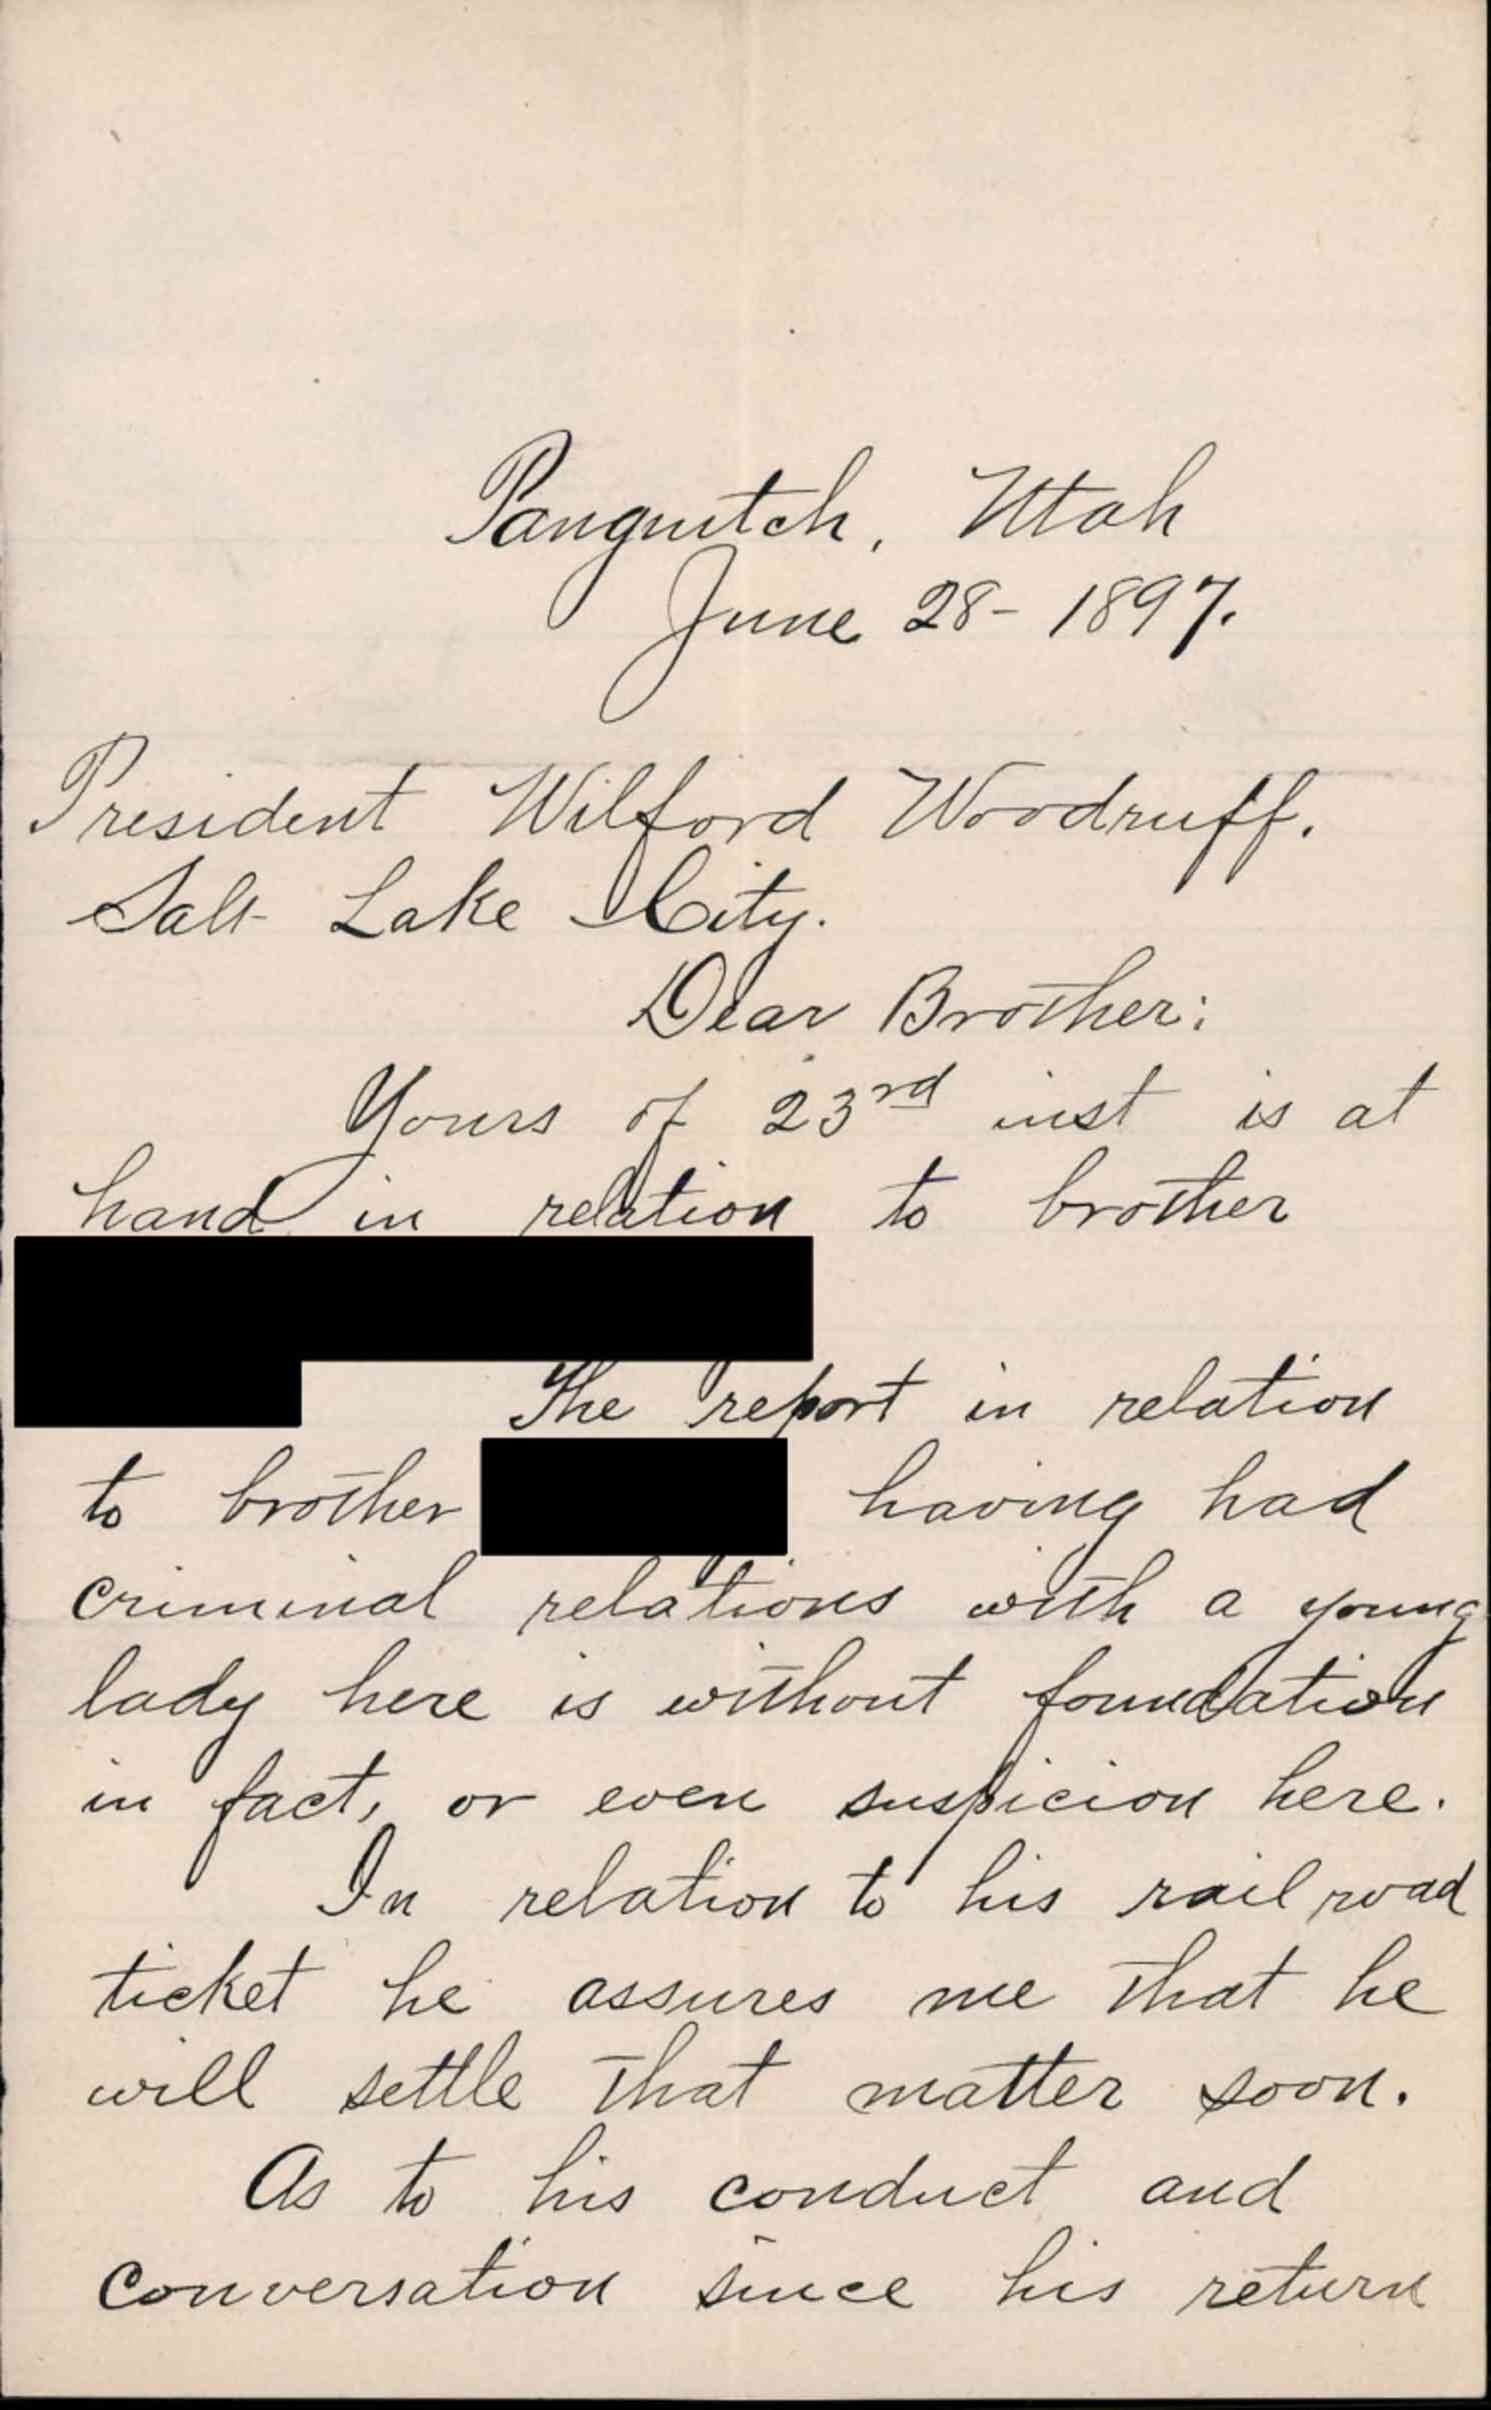 Panguitch, Utah
June 28- 1897.
President Wilford Woodruff.
Salt Lake City.
Dear Brother:
Yours of 23rd inst is at
hand in relation to brother
The report in relation
to brother having had
criminal relations with a young
lady here is without foundation
in fact, or even suspicion here.
In relation to his rail road
ticket he assures me that he
will settle that matter soon.
As to his conduct and
conversation since his return